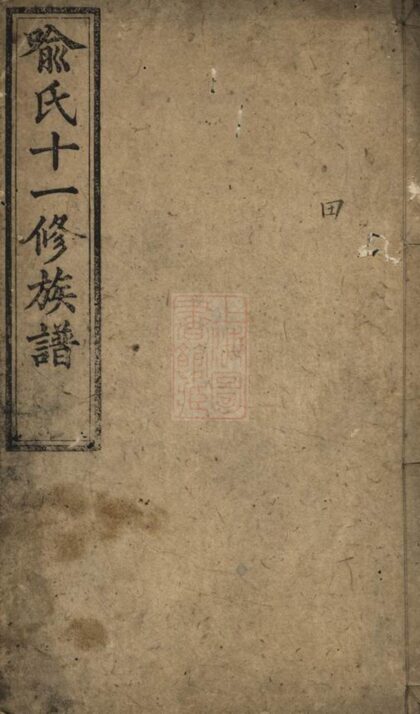 俞氏十一修族譜
田
上海圖書館藏